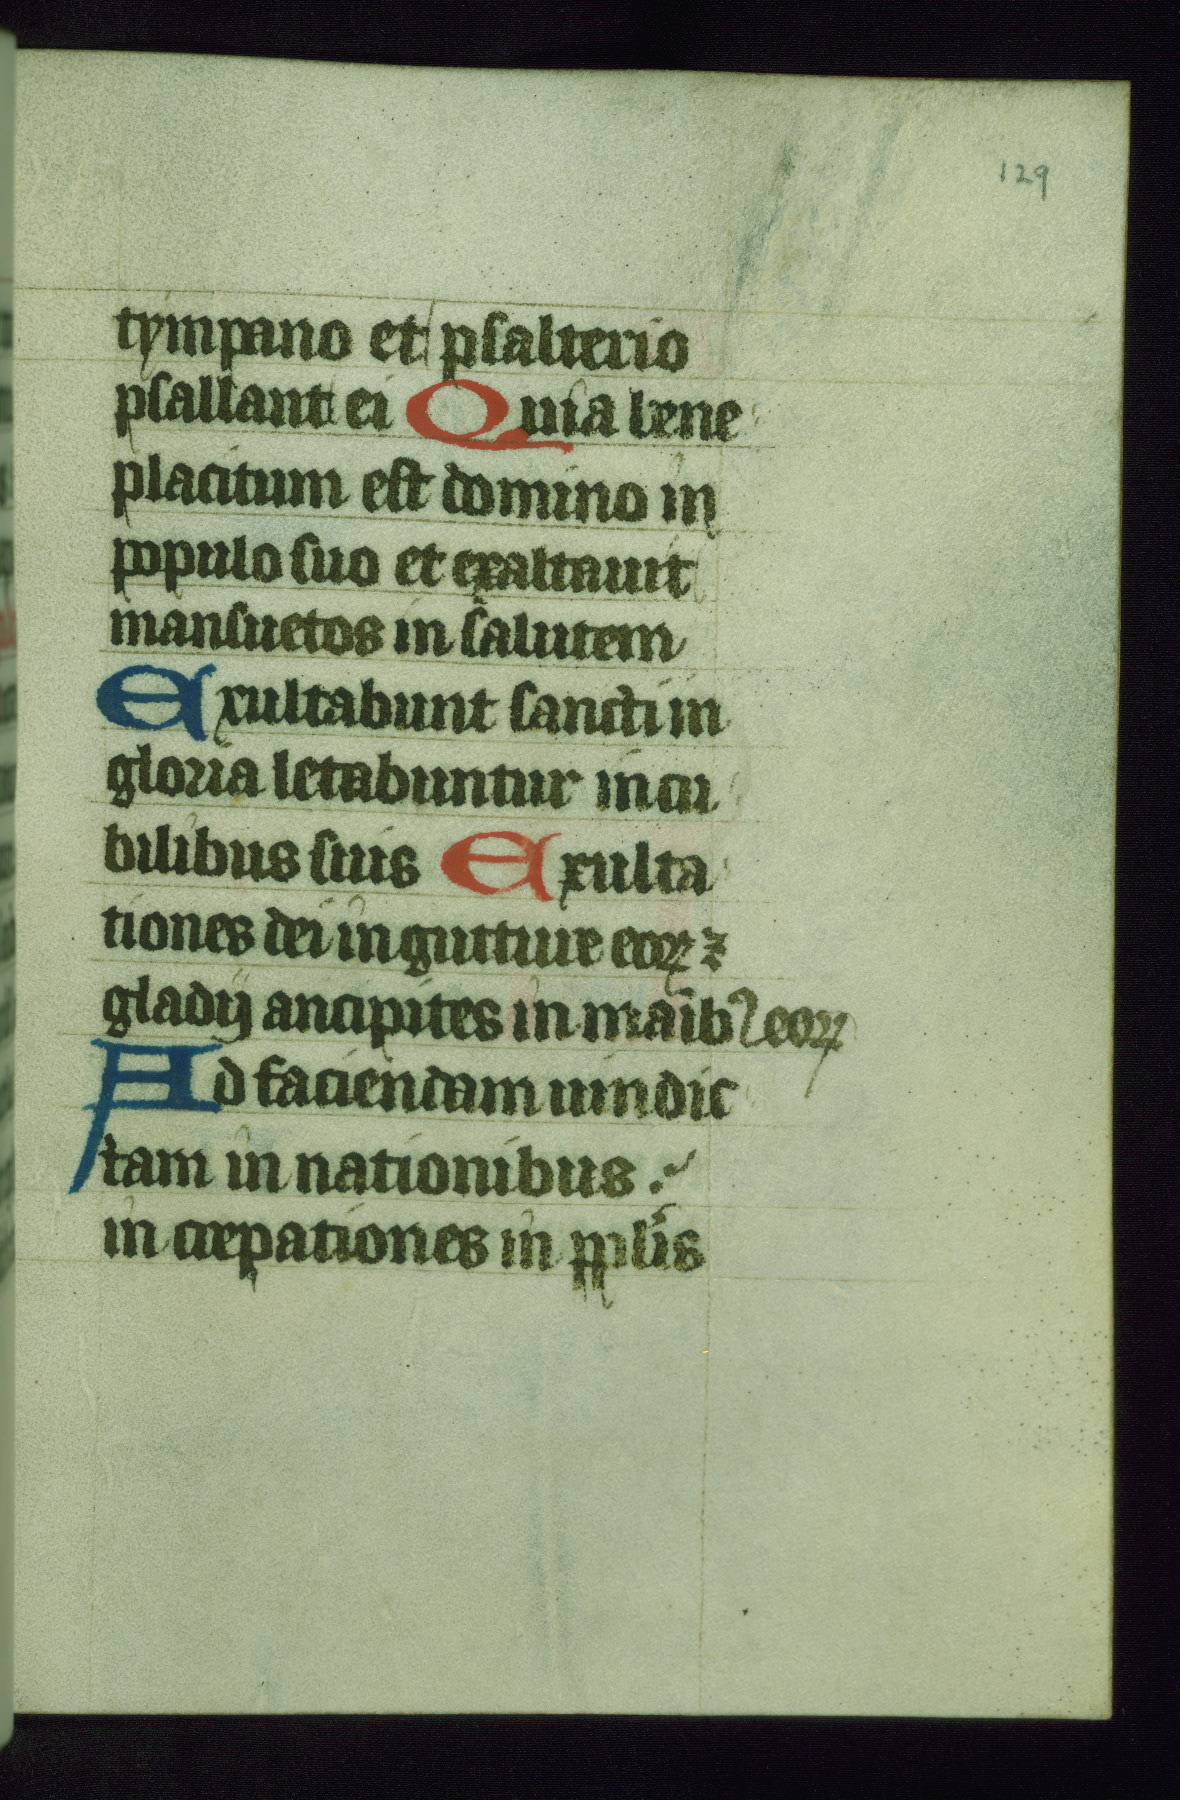 129
tympano et psalterio
psallant ei Quia bene
placitum est domino in
populo suo et exaltauit
mansuetos in salutem
Exultabunt sancti in
gloria letabuntur in cu
bilibus suis Exulta
tiones dei in gutture eoꝝ ⁊
gladij ancipites in maībꝰ eoꝝ
Ad faciendam uindic
tam in nationibus :
in crepationes in pplīs